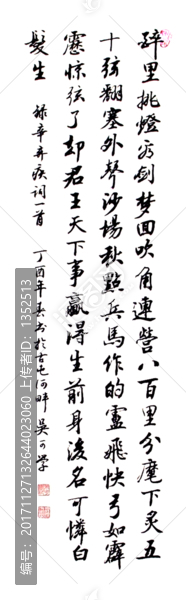 醉里挑燈看劍夢回吹角連營八百里分麾下炙五
十弦翻塞外聲沙場秋點兵馬作的盧飛快弓如霹
靂惊弦了却君王天下事贏得生前身後名可憐白
髮生 錄辛弃疾詞一首 丁酉年春书於古屯河畔 吴可學
上传者: 1352513
编号: 20171127132644023060